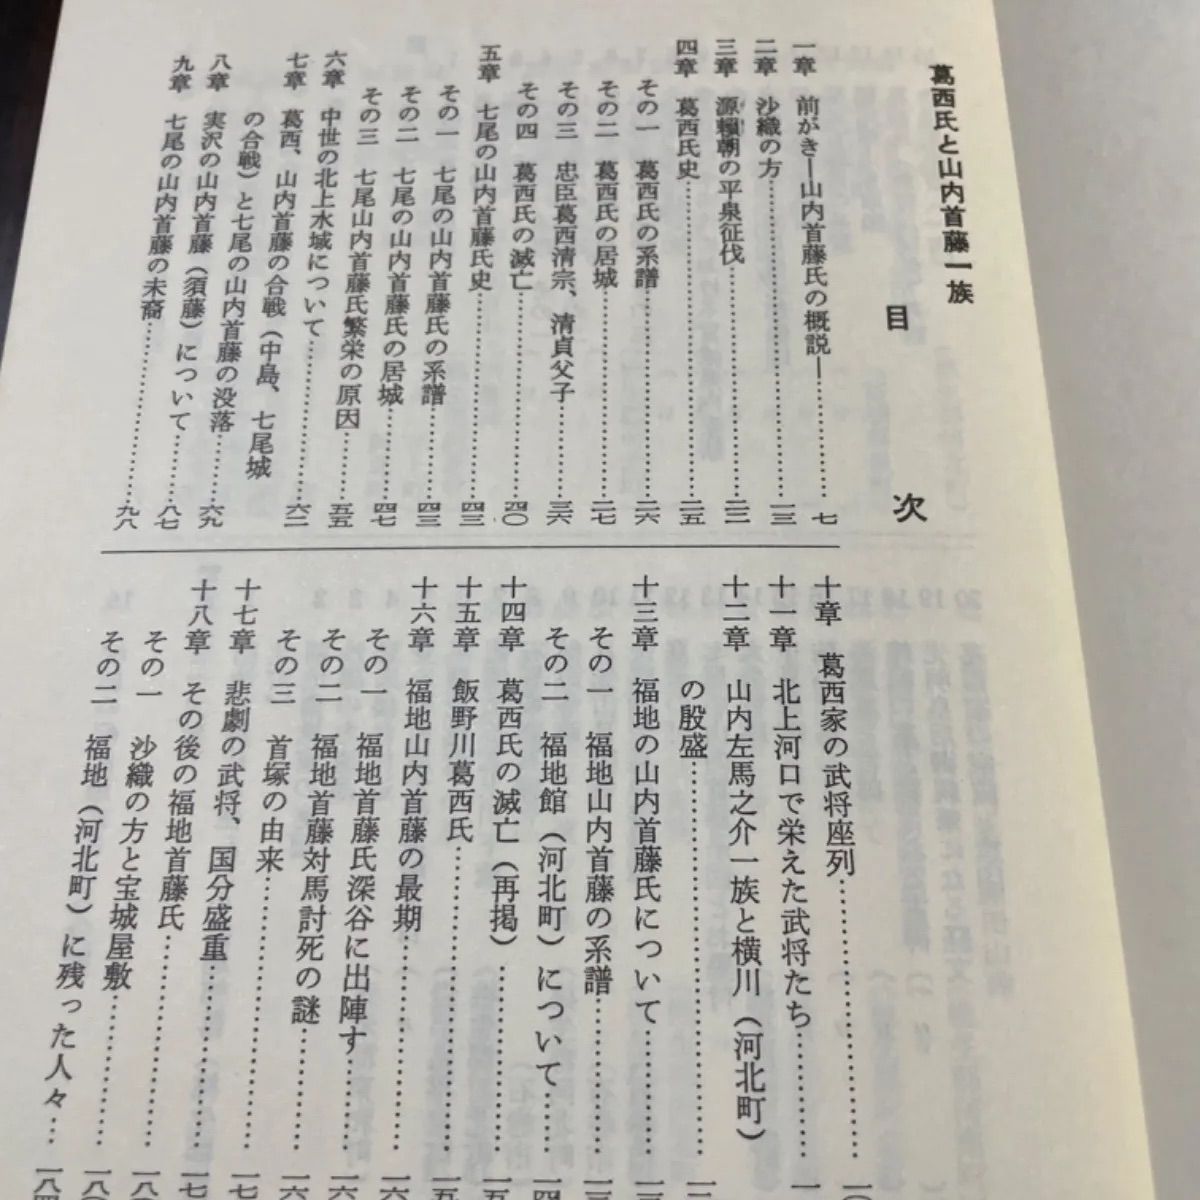 葛西氏と山内首藤一族
目次
一章 前がき―山内首藤氏の概説―……七
二章 沙織の方……一三
三章 源頼朝の平泉征伐……二二
四章 葛西氏史……二五
その一 葛西氏の系譜……二六
その二 葛西氏の居城……二七
その三 忠臣葛西清宗、清貞父子……三六
その四 葛西氏の滅亡……四〇
五章 七尾の山内首藤氏史……四三
その一 七尾の山内首藤氏の系譜……四三
その二 七尾の山内首藤氏の居城……四七
その三 七尾山内首藤氏繁栄の原因……五五
六章 中世の北上水城について……六二
七章 葛西、山内首藤の合戦(中島、七尾城
の合戦)と七尾の山内首藤の没落……六九
八章 実沢の山内首藤(須藤)について……八七
九章 七尾の山内首藤の末裔……九八
十章 葛西家の武将座列……
十一章 北上河口で栄えた武将たち……
十二章 山内左馬之介一族と横川(河北町)
の殷盛……
十三章 福地の山内首藤氏について……
その一 福地山内首藤の系譜……
その二 福地館(河北町)について……
十四章 葛西氏の滅亡(再掲)……
十五章 飯野川葛西氏……
十六章 福地山内首藤の最期……
その一 福地首藤氏深谷に出陣す……
その二 福地首藤対馬討死の謎……
その三 首塚の由来……
十七章 悲劇の武将、国分盛重……
十八章 その後の福地首藤氏……
その一 沙織の方と宝城屋敷……
その二 福地(河北町)に残った人々……